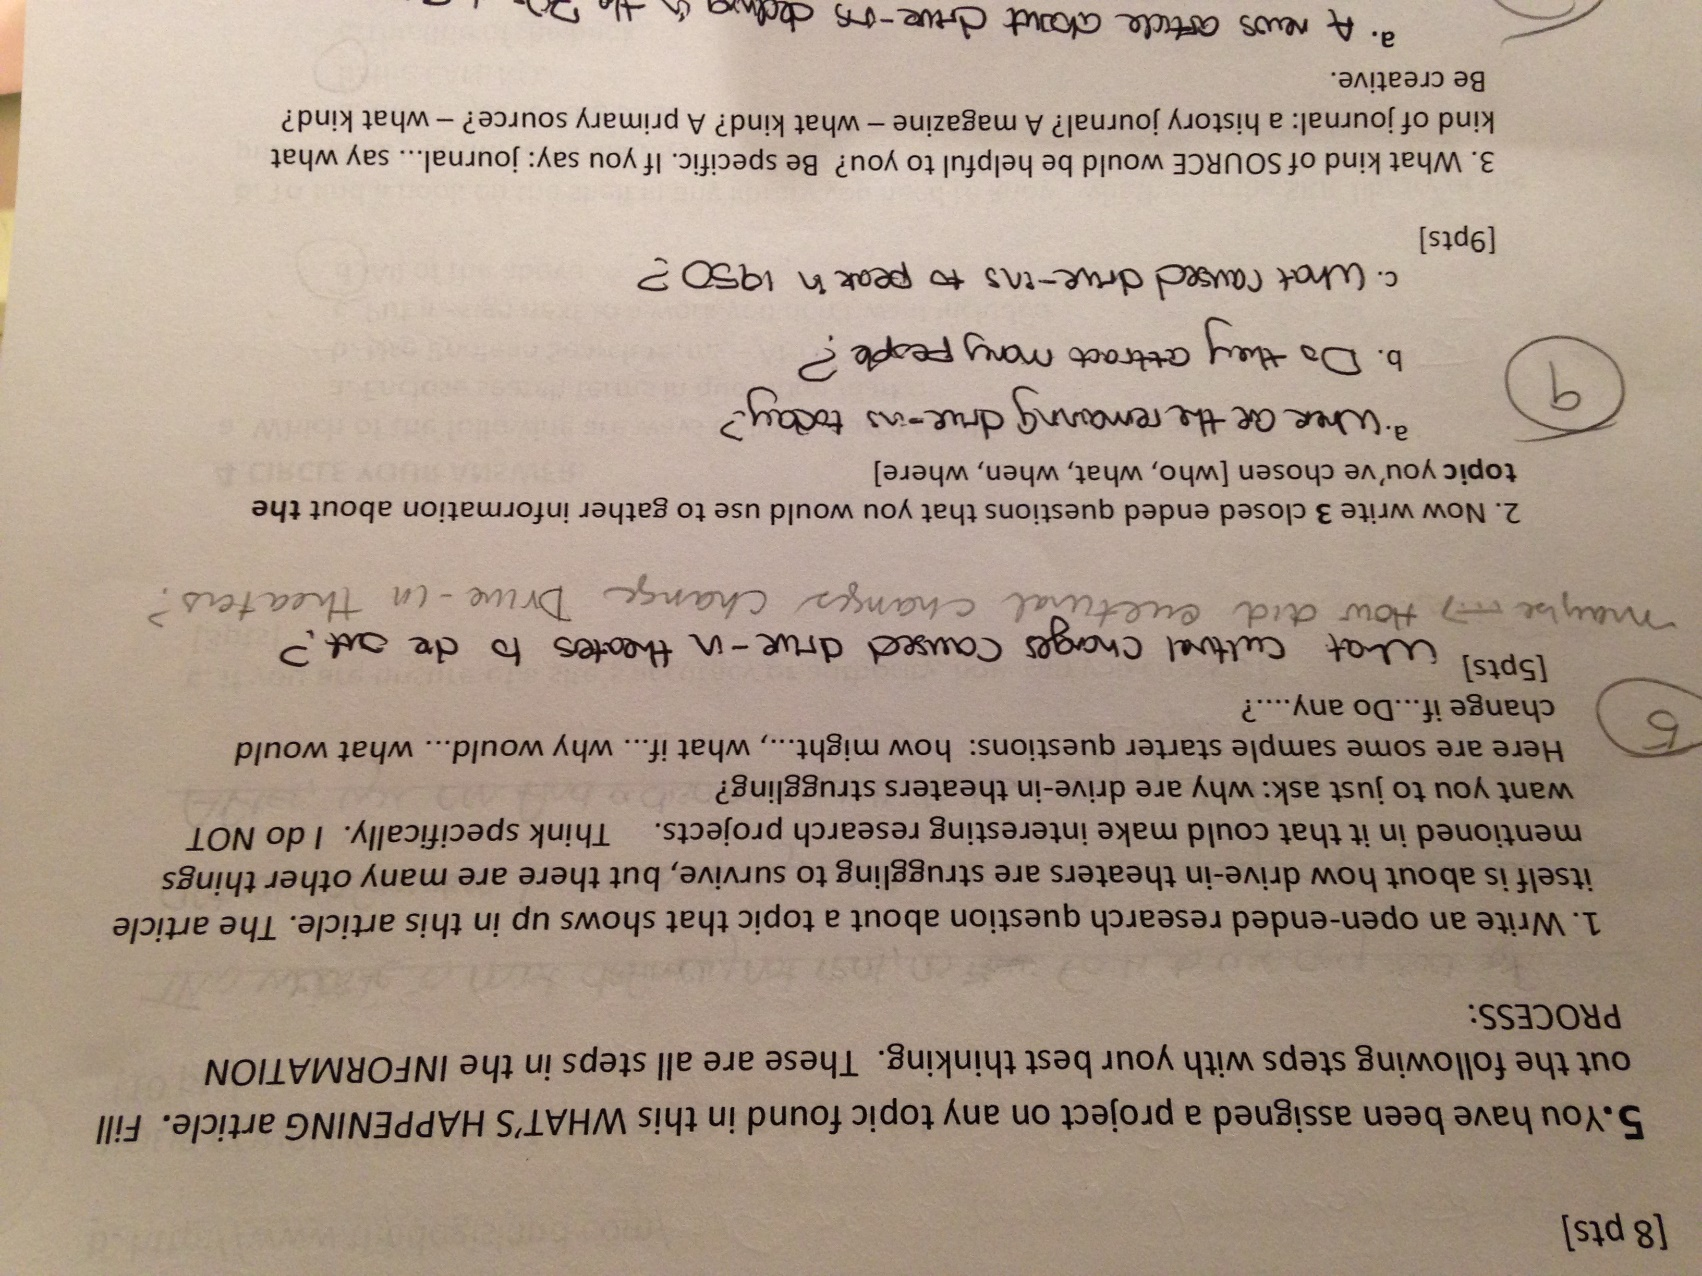 [8 pts]
5. You have been assigned a project on any topic found in this WHAT'S HAPPENING article. Fill
out the following steps with your best thinking. These are all steps in the INFORMATION
PROCESS:
1. Write an open-ended research question about a topic that shows up in this article. The article
itself is about how drive-in theaters are struggling to survive, but there are many other things
mentioned in it that could make interesting research projects. Think specifically. I do NOT
want you to just ask: why are drive-in theaters struggling?
Here are some sample starter questions: how might..., what if... why would... what would
change if...Do any....?
5
[5pts]
What cultural changes caused drive-in theaters to die out?
maybe → How did cultural changes change Drive-in theaters?
2. Now write 3 closed ended questions that you would use to gather information about the
topic you've chosen [who, what, when, where]
a. Where are the remaining drive-ins today?
9
b. Do they attract many people?
c. What caused drive-ins to peak in 1950?
[9pts]
3. What kind of SOURCE would be helpful to you? Be specific. If you say: journal... say what
kind of journal: a history journal? A magazine – what kind? A primary source? – what kind?
Be creative.
a. A news article about drive-ins in the